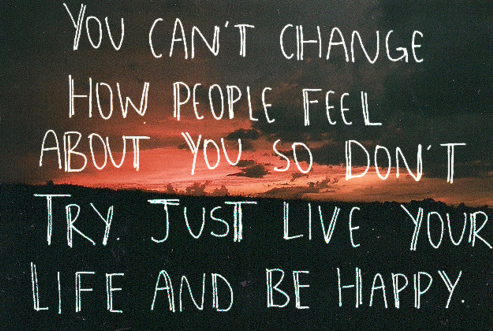 YOU CAN'T CHANGE
HOW PEOPLE FEEL
ABOUT YOU SO DON'T
TRY. JUST LIVE YOUR
LIFE AND BE HAPPY.